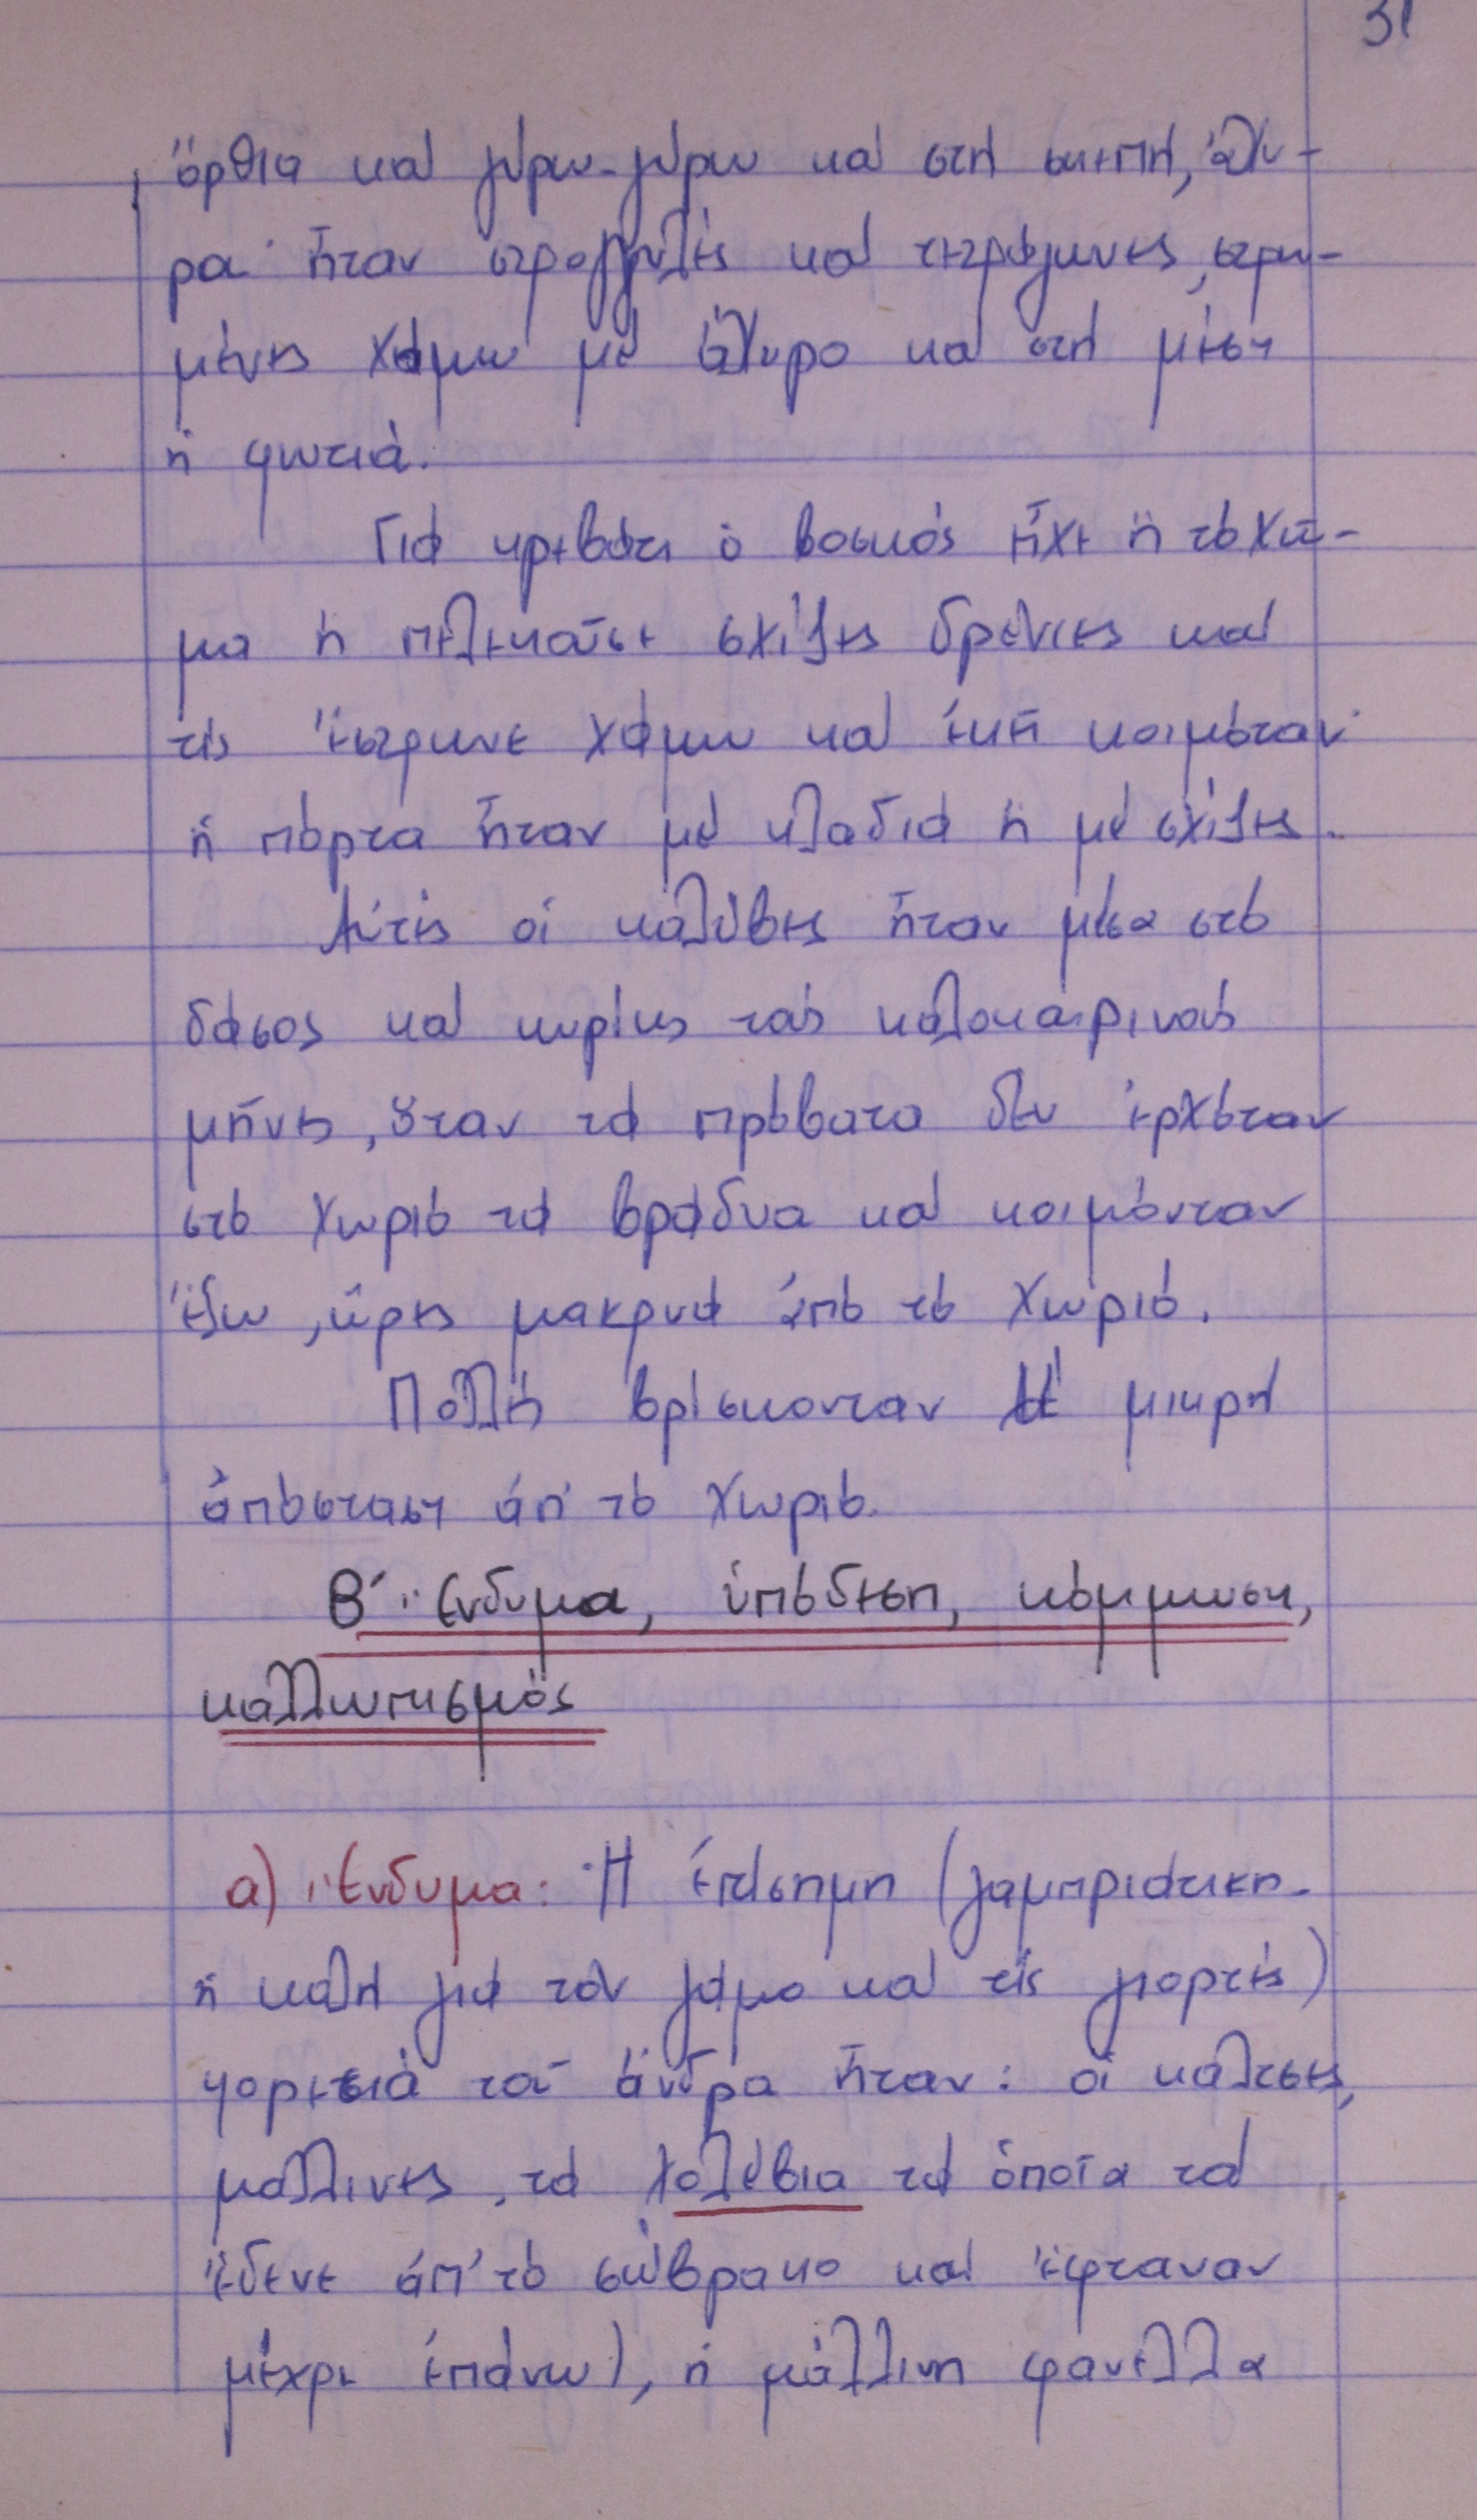 31
ὄρθια καί γύρω-γύρω καί στή σκεπή, ἄχυ-
ρα· ἦταν στρογγυλές καί τετράγωνες, στρω-
μένες χάμω μέ ἄχυρο καί στή μέση
ἡ φωτιά.
Γιά κρεβάτι ὁ βοσκός εἶχε ἤ τό χῶ-
μα ἤ πελεκοῦσε σχίζες δρένιες καί
τίς ἔστρωνε χάμω καί ἐκεῖ κοιμόταν·
ἡ πόρτα ἦταν μέ κλαδιά ἤ μέ σχίζες.
Αὐτές οἱ καλύβες ἦταν μέσα στό
δάσος καί κυρίως τούς καλοκαιρινούς
μῆνες, ὅταν τά πρόβατα δέν ἐρχόταν
στό χωριό τά βράδυα καί κοιμόνταν
ἔξω, ὧρες μακρυά ἀπό τό χωριό.
Πολλές βρίσκονταν σέ μικρή
ἀπόσταση ἀπ' τό χωριό.
Β΄ Ἔνδυμα, ὑπόδεση, κόμμωση,
καλλωπισμός
α) Ἔνδυμα: Ἡ ἐπίσημη (γαμπριάτικη-
ἡ καλή γιά τόν γάμο καί τίς γιορτές)
φορεσιά τοῦ ἄνδρα ἦταν: οἱ κάλτσες,
μάλλινες, τά χολέβια τά ὁποῖα τά
ἔδενε ἀπ' τό σώβρακο καί ἔφταναν
μέχρι ἐπάνω), ἡ μάλλινη φανέλλα